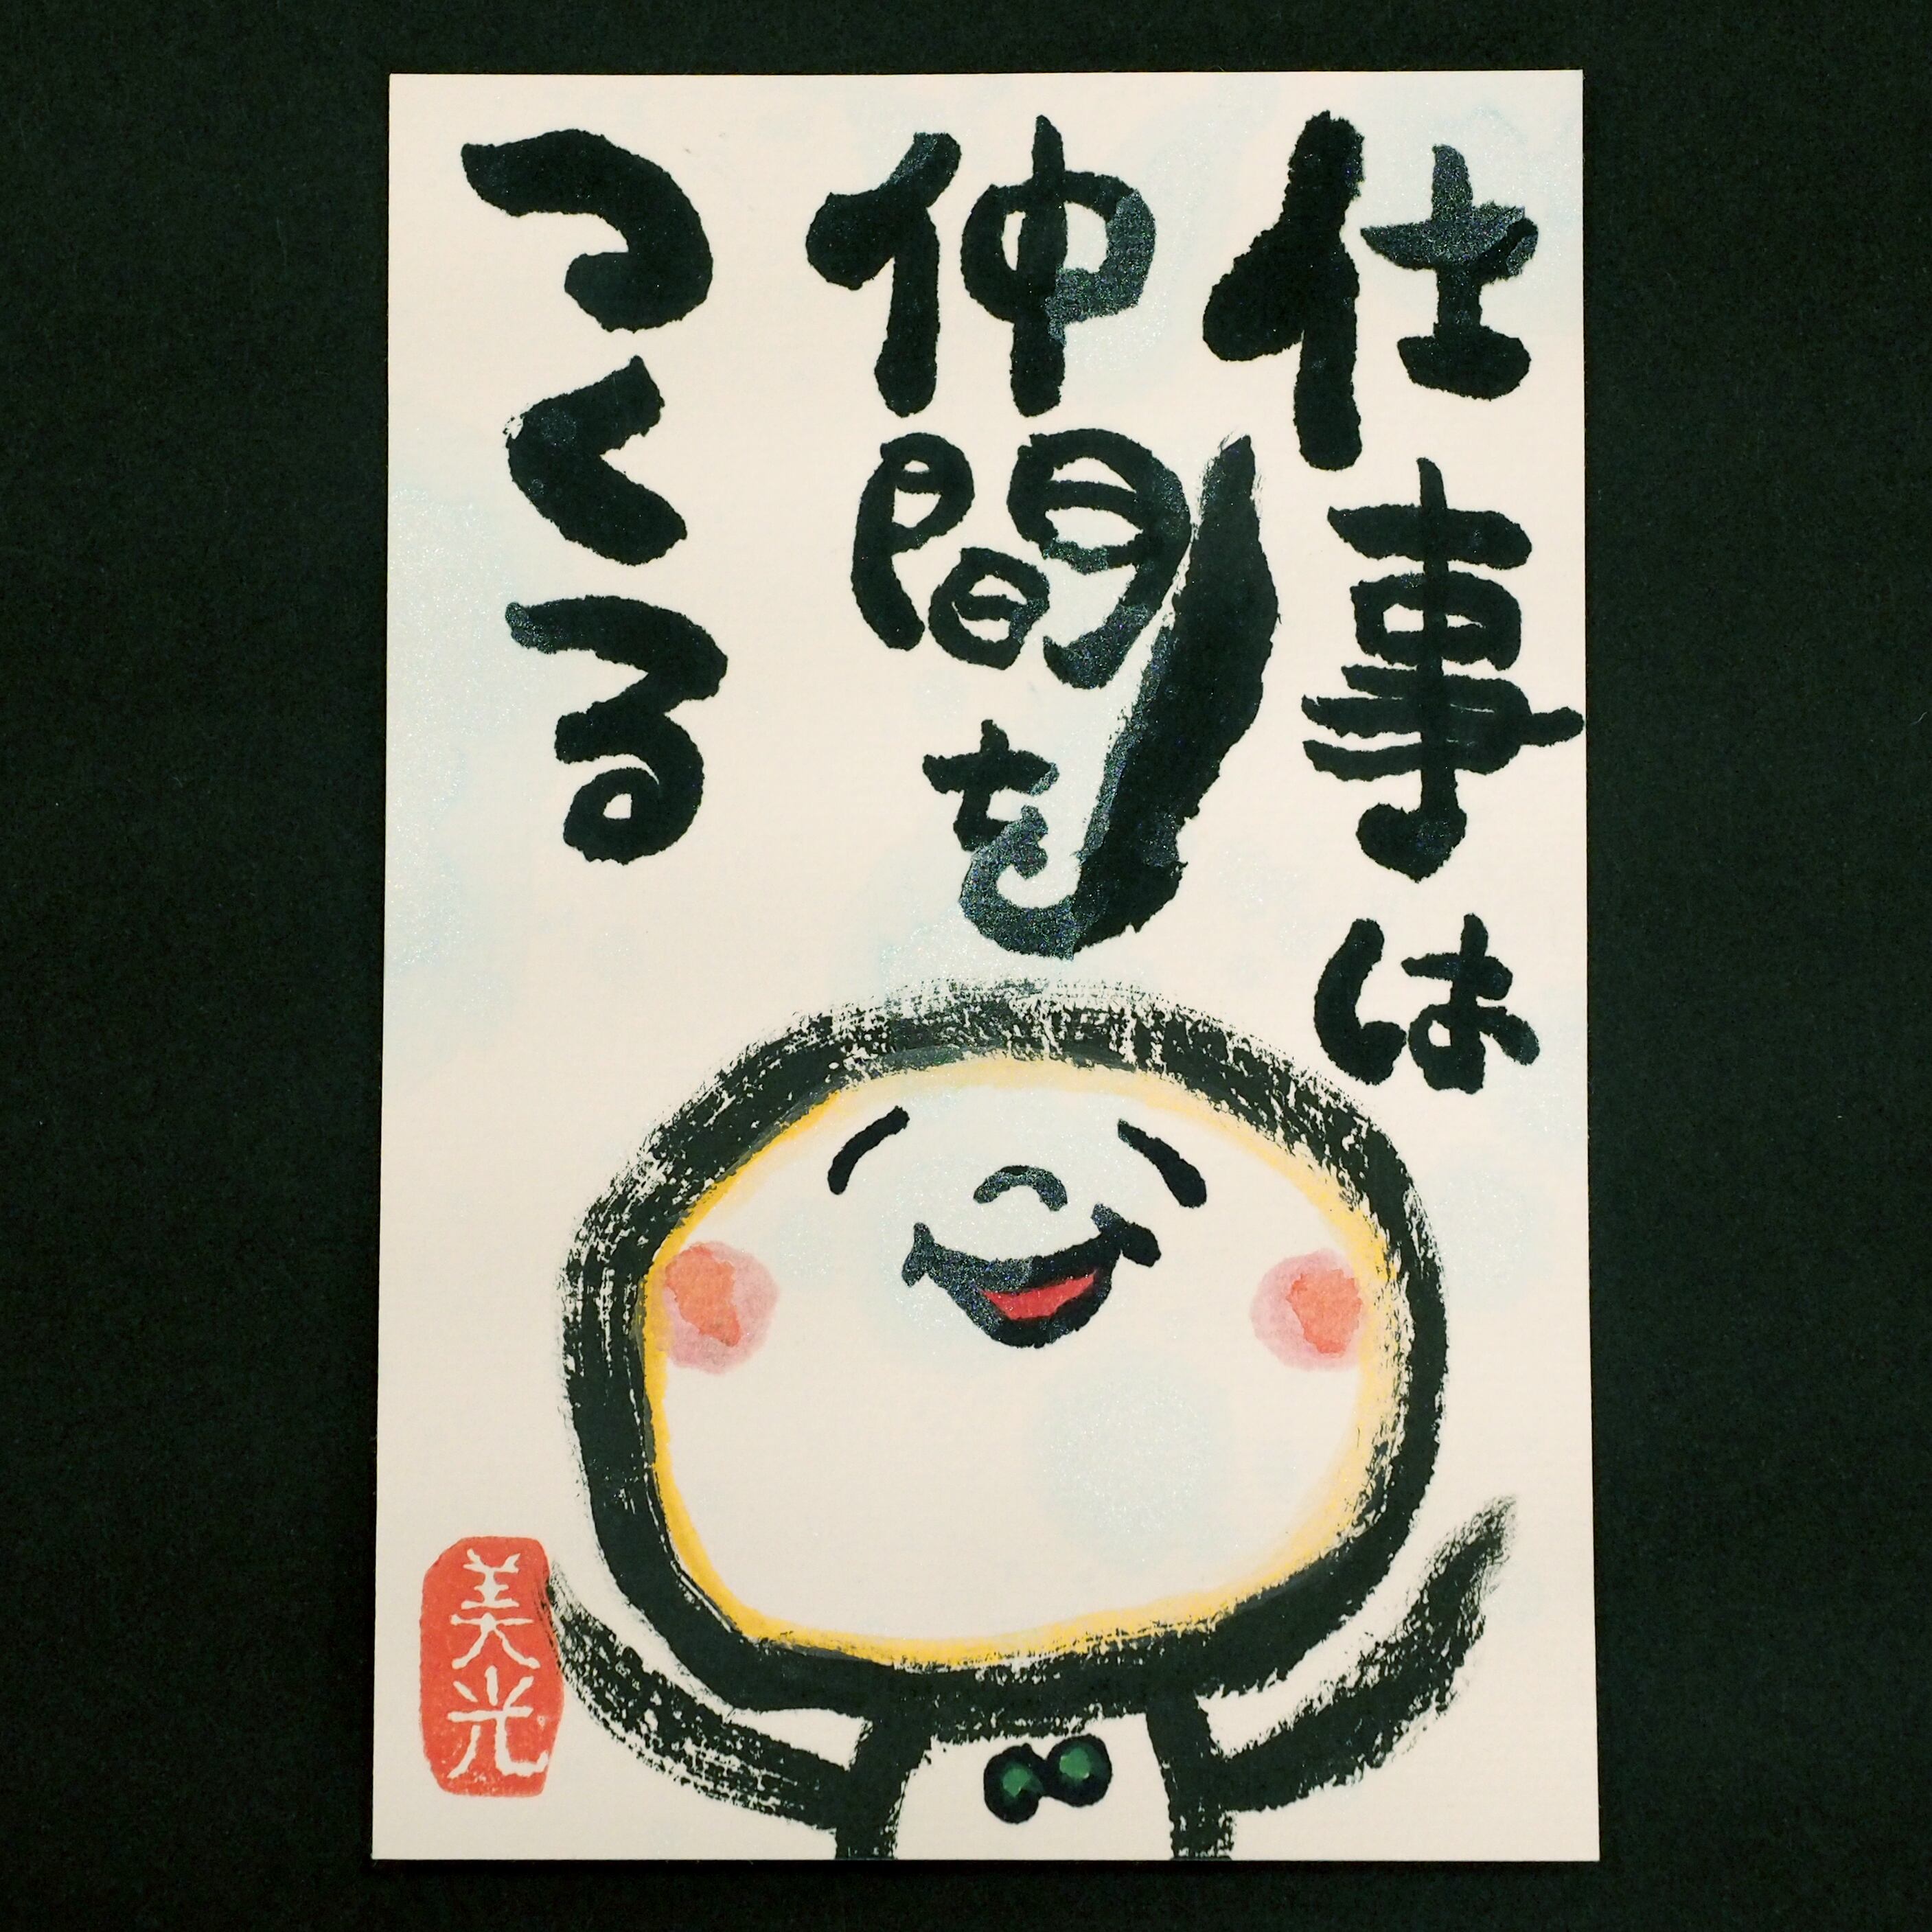 仕事は
仲間を
つくる
美光